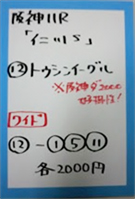 阪神11R
⑫トウシンイーグル
※阪神ダ2000
好相性!
ワイド
⑫-①⑤⑪
各2000円